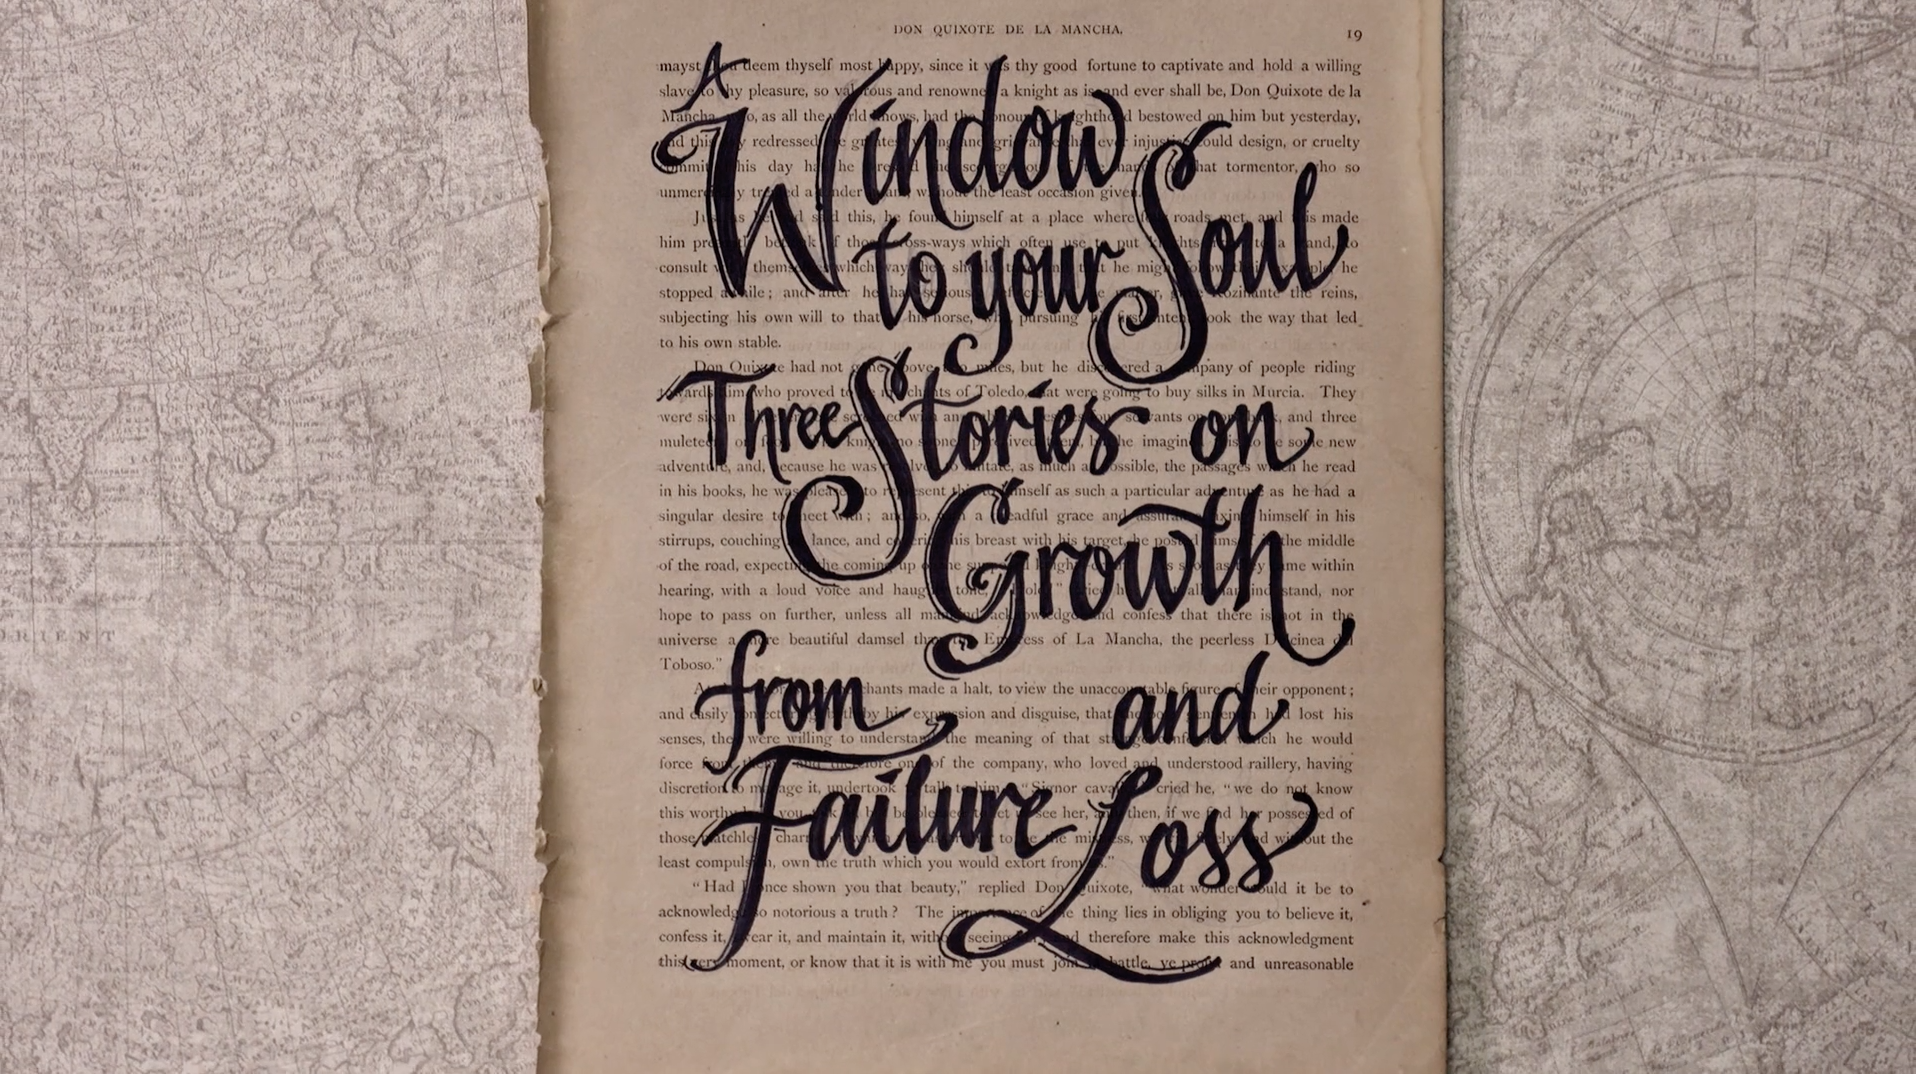 DON QUIXOTE DE LA MANCHA.
19
A
Window
to your Soul
Three Stories on
Growth
from and
Failure Loss
mayst deem thyself most happy, since it was thy good fortune to captivate and hold a willing
slave to thy pleasure, so valorous and renowned a knight as is and ever shall be, Don Quixote de la
Mancha who, as all the world knows, had the honour of knighthood bestowed on him but yesterday,
and this day redressed the greatest wrong and grievance that ever injustice could design, or cruelty
commit. This day has he the scourge of the hand of that tormentor, who so
unmercifully treated a tender without the least occasion given.
Just as he had said this, he found himself at a place where four roads met, and this made
him presently bethink of those cross-ways which often use to put knights to a stand, to
consult with themselves which way they should take and that he might follow their example, he
stopped awhile; and after he had seriously reflected on the matter, gave Rozinante the reins,
subjecting his own will to that of his horse, who, pursuing his first intent, took the way that led
to his own stable.
Don Quixote had not gone above two miles, but he discovered a company of people riding
towards him, who proved to be merchants of Toledo, that were going to buy silks in Murcia. They
were six in servants on and three
muleteers on foot. The knight no sooner perceived them, but he imagined this to be some new
adventure, and, because he was resolved to imitate, as much as possible, the passages which he read
in his books, he was pleased to represent this to himself as such a particular adventure as he had a
singular desire to meet with; and so, with a dreadful grace and assurance, fixing himself in his
stirrups, couching his lance, and covering his breast with his target, he posted himself in the middle
of the road, expecting the coming up of the supposed as soon as they came within
hearing, with a loud voice and haughty tone, "Hold!" cried he; "let all mankind stand, nor
hope to pass on further, unless all mankind acknowledge and confess that there is not in the
universe a more beautiful damsel than the Empress of La Mancha, the peerless Dulcinea del
Toboso."
merchants made a halt, to view the unaccountable figure of their opponent;
and easily conjecturing both by his expression and disguise, that the poor gentleman had lost his
senses, they were willing to understand the meaning of that strange confession which he would
force from them; and therefore one of the company, who loved and understood raillery, having
discretion to manage it, undertook to talk to him. "Signor cavalier," cried he, "we do not know
this worthy lady you talk of; be pleased to let us see her, and then, if we find her possessed of
those matchless charms, of which you to be the mistress, we will freely, and without the
least compulsion, own the truth which you would extort from us."
"Had I once shown you that beauty," replied Don Quixote, "what wonder would it be to
acknowledge so notorious a truth? The importance of the thing lies in obliging you to believe it,
confess it, swear it, and maintain it, without seeing her; and therefore make this acknowledgment
this very moment, or know that it is with me you must join in battle, ye proud and unreasonable
ORIENT